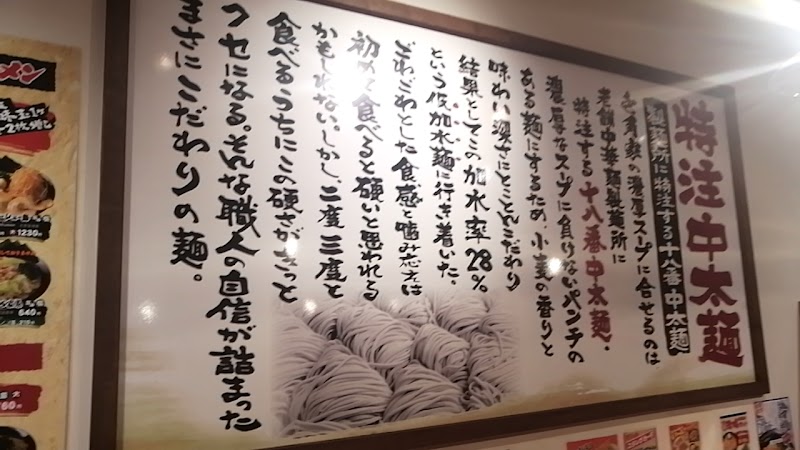 特注中太麺
製麺所に特注する十八番中太麺
角家の濃厚スープに合せるのは
老舗中華麺製麺所に
特注する十八番中太麺。
濃厚なスープに負けないパンチの
ある麺にするため、小麦の香りと
味わい深さにとことんこだわり
結果としてこの加水率28%
という低加水麺に行き着いた。
ごわごわとした食感と噛み応えは
初めて食べると硬いと思われる
かもしれない。しかし二度三度と
食べるうちにこの硬さがきっと
クセになる。そんな職人の自信が詰まった
まさにこだわりの麺。
メン
1230
640
760